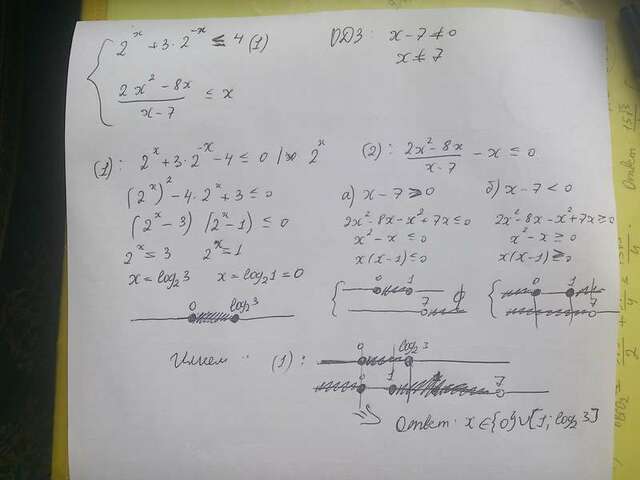 2^x + 3·2^-x ≤ 4 (1)
ОДЗ: x-7≠0
x≠7
2x²-8x / x-7 ≤ x
(1): 2^x + 3·2^-x - 4 ≤ 0 | · 2^x
(2^x)² - 4·2^x + 3 ≤ 0
(2^x-3)(2^x-1) ≤ 0
2^x = 3 2^x = 1
x = log₂3 x = log₂1 = 0
0 log₂3
(2): 2x²-8x / x-7 - x ≤ 0
а) x-7 > 0
2x²-8x-x²+7x ≤ 0
x²-x ≤ 0
x(x-1) ≤ 0
0 1
7
∅
б) x-7 < 0
2x²-8x-x²+7x ≥ 0
x²-x ≥ 0
x(x-1) ≥ 0
0 1
7
Имеем: (1):
0 log₂3
0 1 7
Ответ: x ∈ {0}∪[1; log₂3]